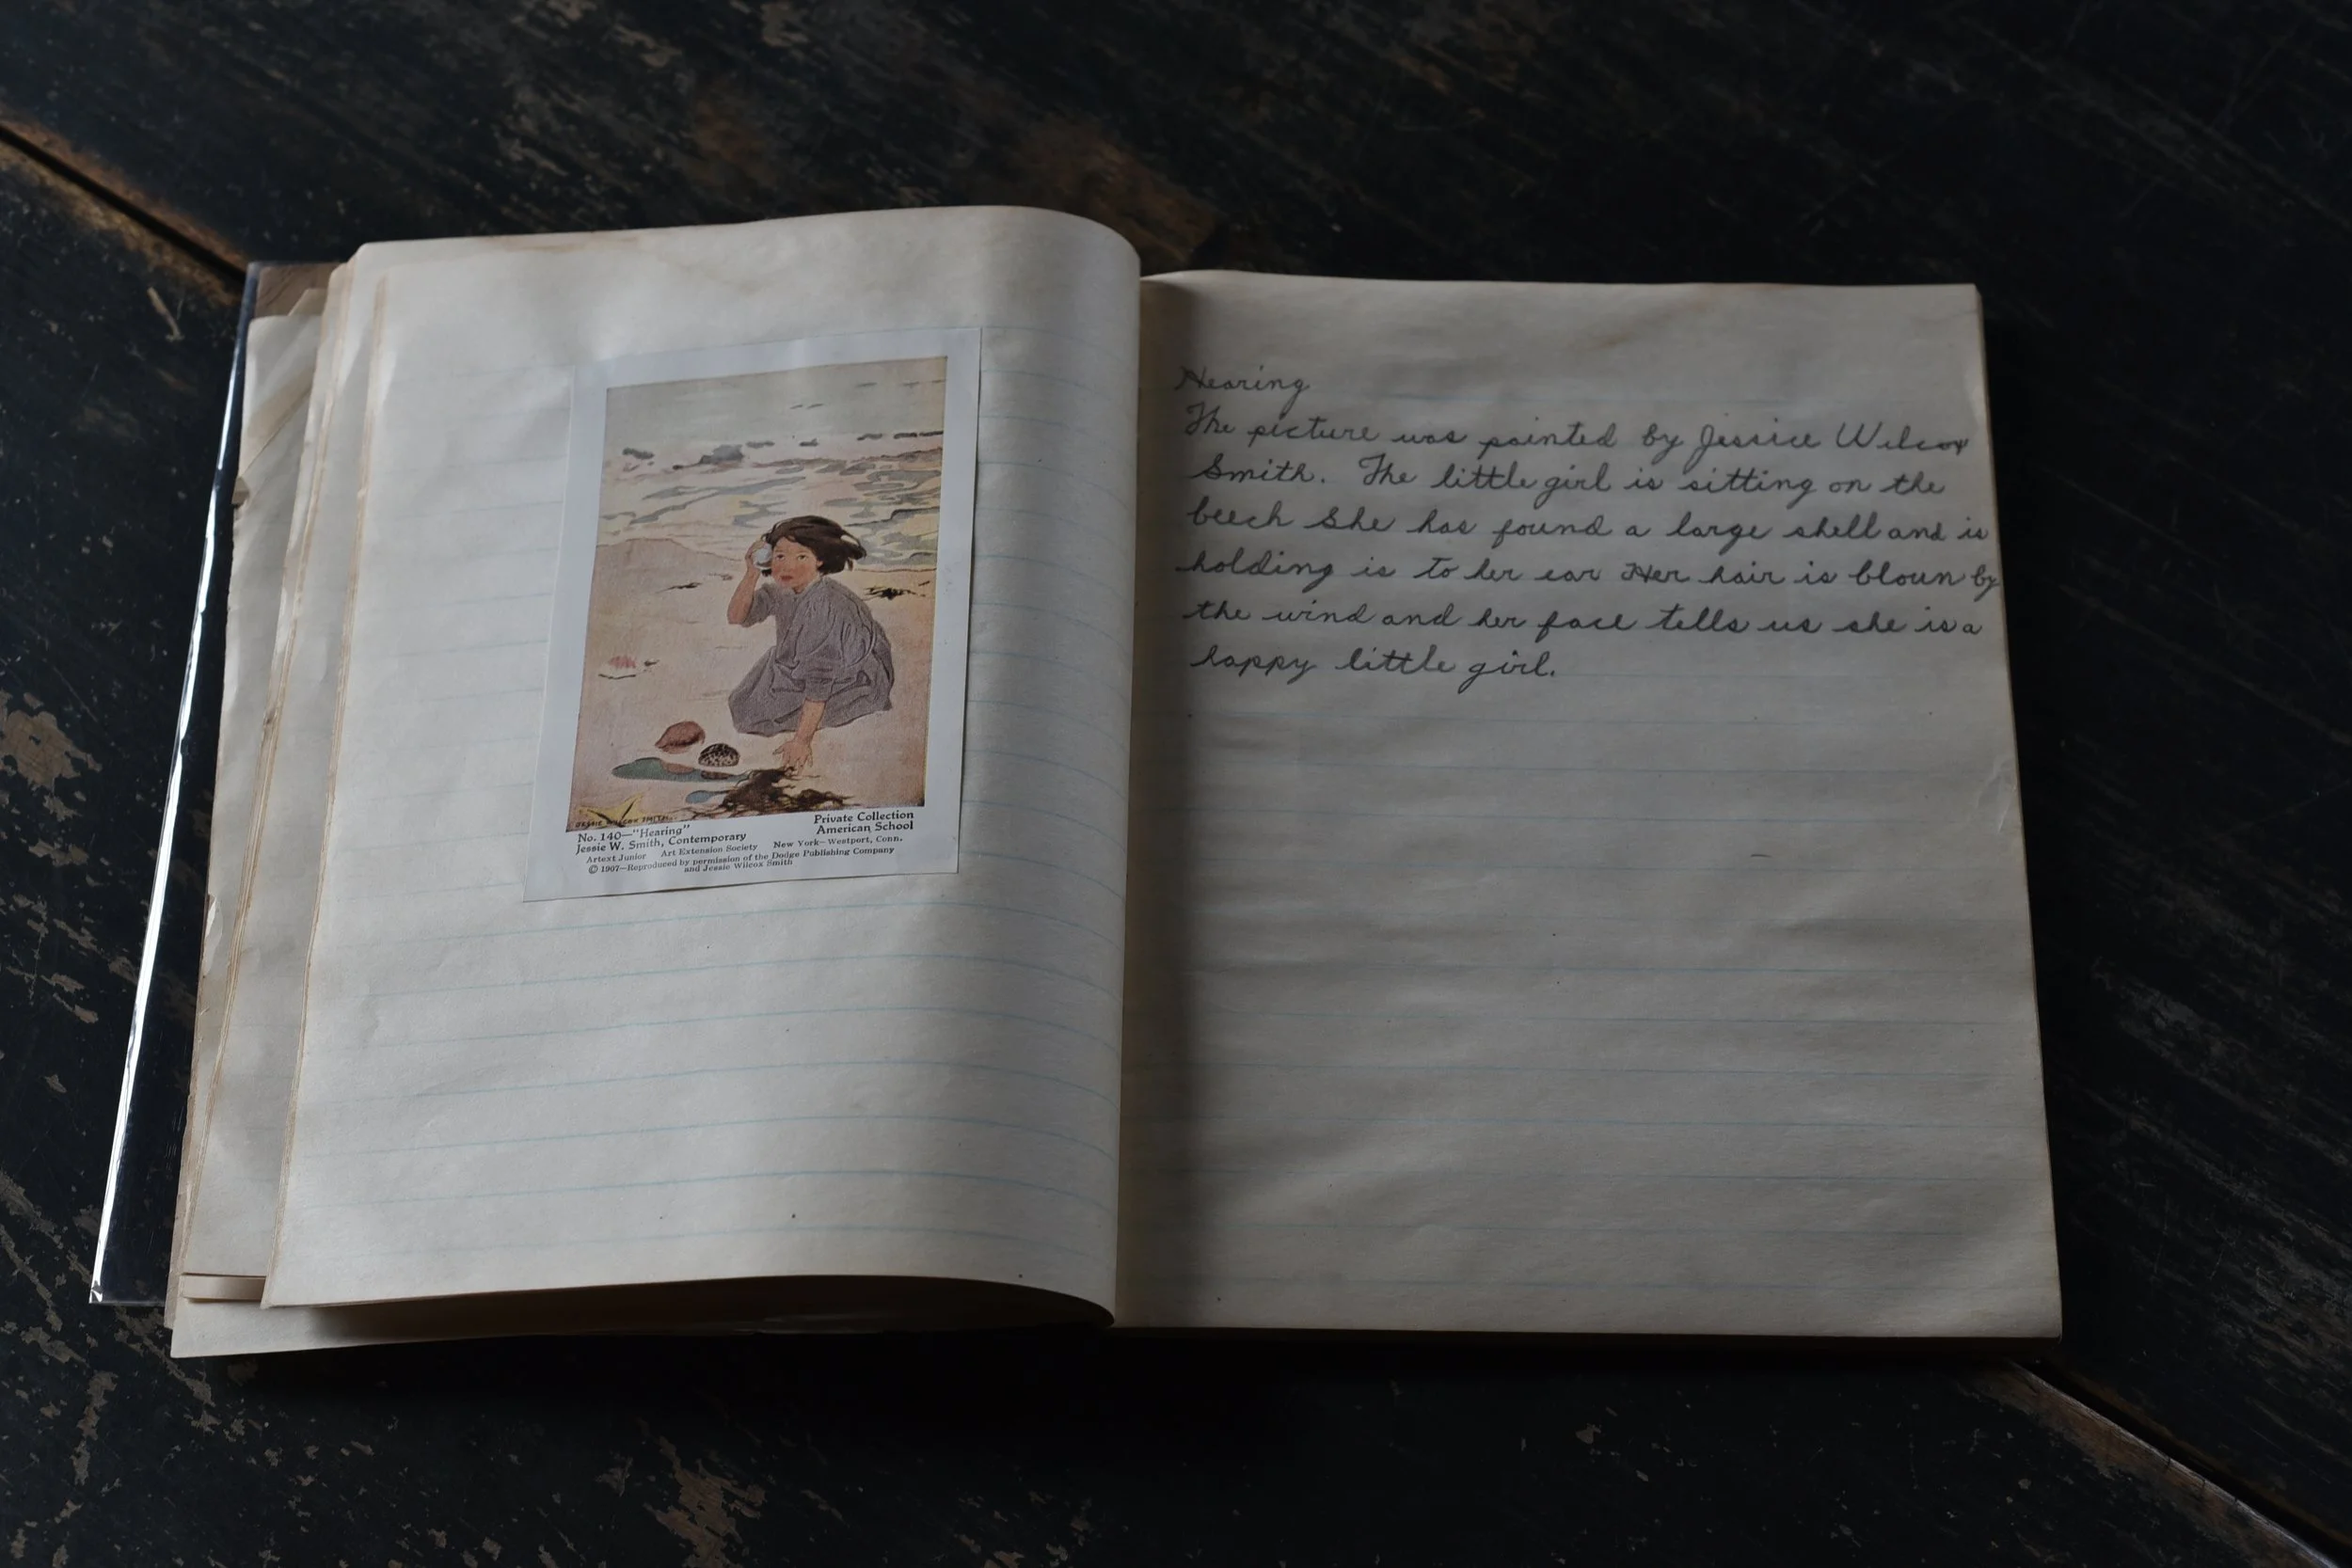 JESSIE WILLCOX SMITH
No. 140—"Hearing"
Jessie W. Smith, Contemporary
Private Collection
American School
Artext Junior Art Extension Society New York—Westport, Conn.
© 1907—Reproduced by permission of the Dodge Publishing Company
and Jessie Wilcox Smith
Hearing
The picture was painted by Jessice Wilcox
Smith. The little girl is sitting on the
beech She has found a large shell and is
holding is to her ear Her hair is bloun by
the wind and her face tells us she is a
happy little girl.